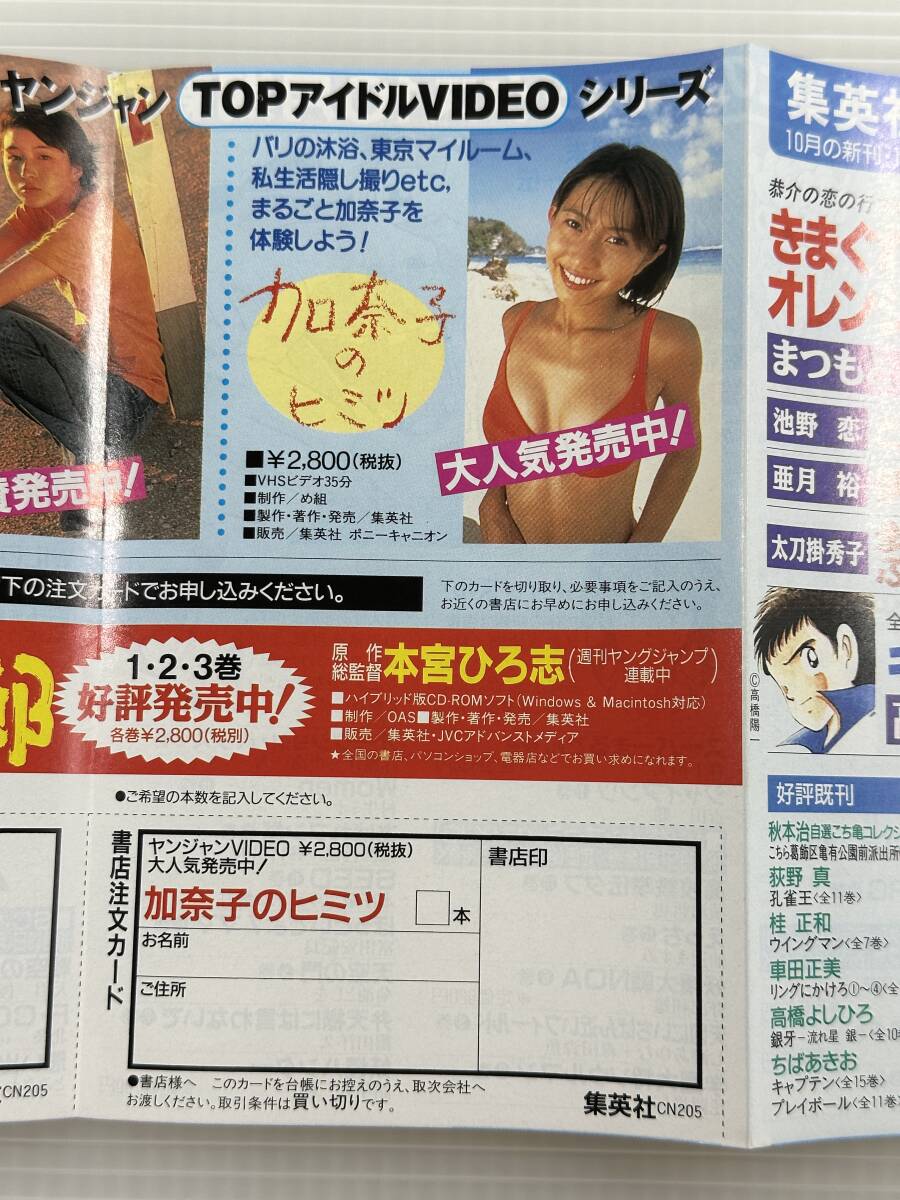 ヤンジャン TOPアイドルVIDEO シリーズ
バリの沐浴、東京マイルーム、
私生活隠し撮りetc,
まるごと加奈子を
体験しよう！
加奈子
の
ヒミツ
■￥2,800(税抜)
■VHSビデオ35分
■制作／め組
■製作・著作・発売／集英社
■販売／集英社 ポニーキャニオン
大人気発売中！
発売中！
下の注文カードでお申し込みください。
下のカードを切り取り、必要事項をご記入のうえ、
お近くの書店にお早めにお申し込みください。
郎
1・2・3巻
好評発売中！
各巻￥2,800(税別)
原作
総監督 本宮ひろ志 (週刊ヤングジャンプ連載中)
■ハイブリッド版CD-ROMソフト(Windows & Macintosh対応)
■制作／OAS■製作・著作・発売／集英社
■販売／集英社・JVCアドバンストメディア
★全国の書店、パソコンショップ、電器店などでお買い求めになれます。
●ご希望の本数を記入してください。
書店注文カード
ヤンジャンVIDEO ￥2,800(税抜)
大人気発売中！
加奈子のヒミツ
本
お名前
ご住所
書店印
●書店様へ このカードを台帳にお控えのうえ、取次会社へ
お渡しください。取引条件は買い切りです。
集英社CN205
CN205
集英社
10月の新刊
恭介の恋の行
きまぐ
オレン
まつも
池野 恋
亜月 裕
太刀掛秀子
全
©高橋陽一
好評既刊
秋本治自選こち亀コレクシ
こちら葛飾区亀有公園前派出所
荻野 真
孔雀王〈全11巻〉
桂 正和
ウイングマン〈全7巻〉
車田正美
リングにかけろ①〜④〈全
高橋よしひろ
銀牙－流れ星 銀－〈全10巻
ちばあきお
キャプテン〈全15巻〉
プレイボール〈全11巻〉